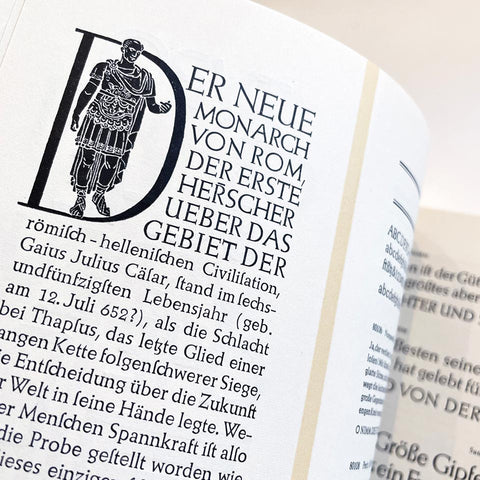 DER NEUE
MONARCH
VON ROM,
DER ERSTE
HERSCHER
UEBER DAS
GEBIET DER
römiſch-helleniſchen Civiliſation,
Gaius Julius Cäſar, ſtand im ſechs-
undfünfzigſten Lebensjahr (geb.
am 12. Juli 652?), als die Schlacht
bei Thapſus, das letzte Glied einer
angen Kette folgenſchwerer Siege,
ie Entſcheidung über die Zukunft
r Welt in ſeine Hände legte. We-
er Menſchen Spannkraft iſt alſo
die Probe geſtellt worden wie
dieses
n iſt der Güt
größtes aber
HTER UND
Besten seine
hat gelebt fü
D VON DER
Große Gipfe
ein